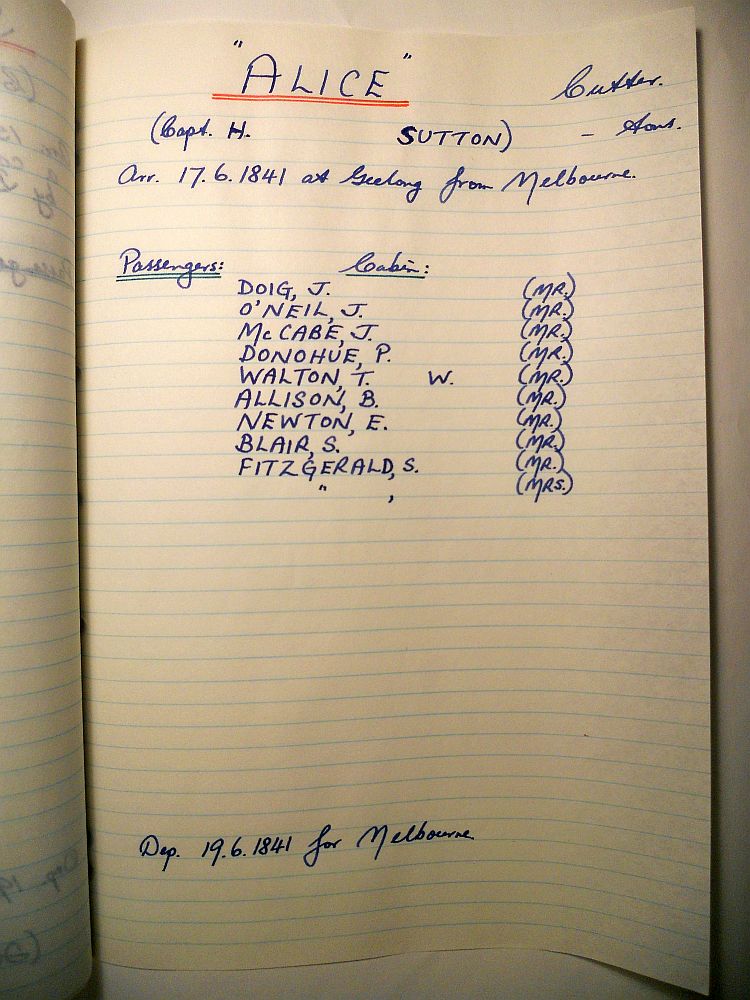 "ALICE" Cutter.
(Capt. H. SUTTON) - tons.
Arr. 17.6.1841 at Geelong from Melbourne.
Passengers: Cabin:
DOIG, J. (MR.)
O'NEIL, J. (MR.)
McCABE, J. (MR.)
DONOHUE, P. (MR.)
WALTON, T. W. (MR.)
ALLISON, B. (MR.)
NEWTON, E. (MR.)
BLAIR, S. (MR.)
FITZGERALD, S. (MR.)
" , (MRS.)
Dep. 19.6.1841 for Melbourne